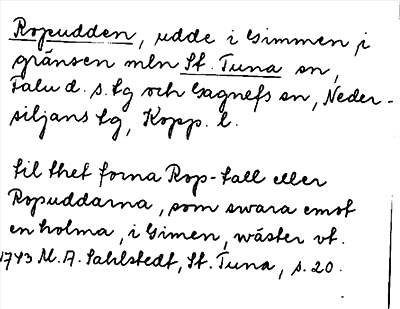 Ropudden, udde i Gimmen, i
gränsen mln St. Tuna sn,
Falu d. s. tg och Gagnefs sn, Neder-
siljans tg, Kopp. l.
til thet forna Rop-tall eller
Ropuddarna, som swara emot
en holma, i Gimen, wäster vt.
1743 M. A. Sahlstedt, St. Tuna, s. 20.